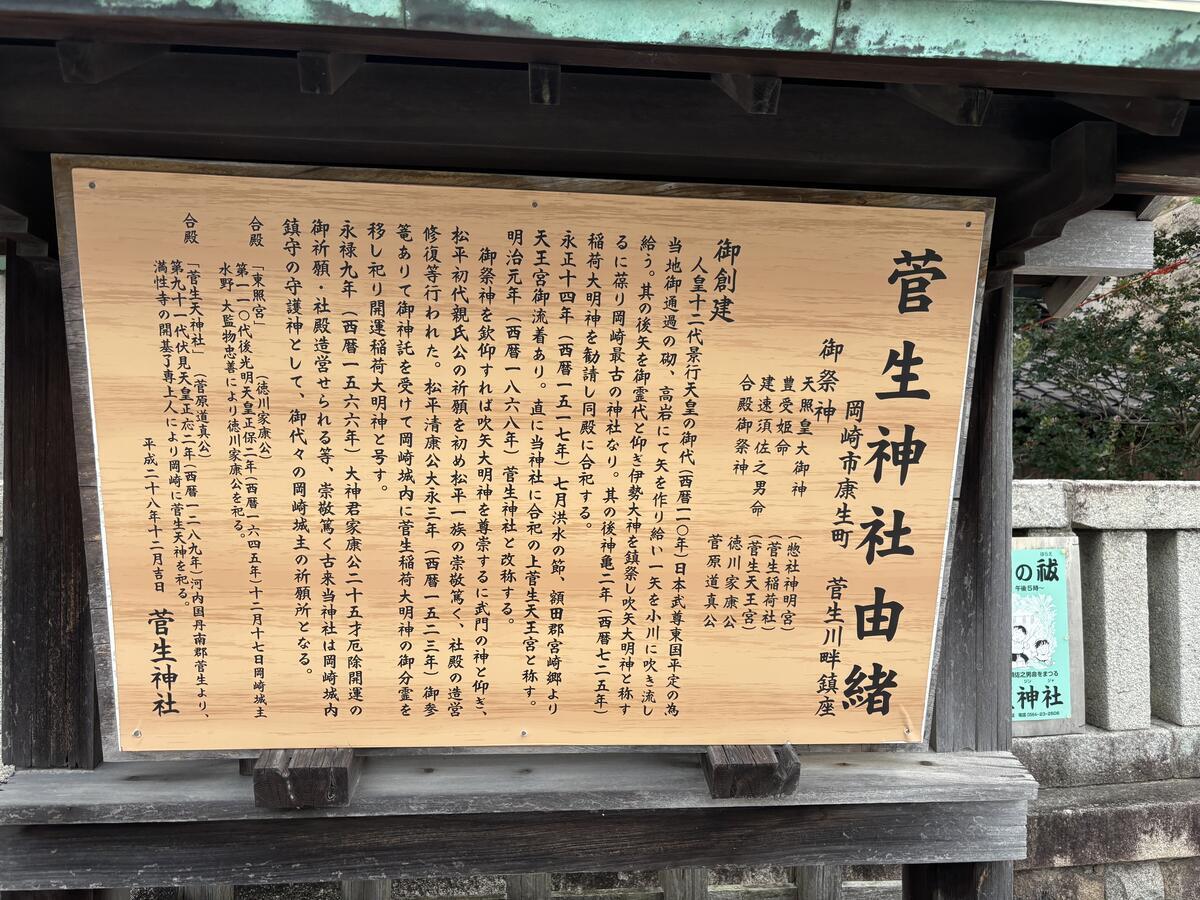 菅生神社由緒
岡崎市康生町　菅生川畔鎮座
御祭神
天照皇大御神　(惣社神明宮)
豊受姫命　(菅生稲荷社)
建速須佐之男命　(菅生天王宮)
合殿御祭神　徳川家康公
菅原道真公
御創建
人皇十二代景行天皇の御代(西暦一一〇年)日本武尊東国平定の為
当地御通過の砌、高岩にて矢を作り給い一矢を小川に吹き流し
給う。其の後矢を御霊代と仰ぎ伊勢大神を鎮祭し吹矢大明神と称す
るに葆り岡崎最古の神社なり。其の後神亀二年(西暦七二五年)
稲荷大明神を勧請し同殿に合祀する。
永正十四年(西暦一五一七年)七月洪水の節、額田郡宮崎郷より
天王宮御流着あり。直に当神社に合祀の上菅生天王宮と称す。
明治元年(西暦一八六八年)菅生神社と改称する。
御祭神を欽仰すれば吹矢大明神を尊崇するに武門の神と仰ぎ、
松平初代親氏公の祈願を初め松平一族の崇敬篤く、社殿の造営
修復等行われた。松平清康公大永三年(西暦一五二三年)御参
篭ありて御神託を受けて岡崎城内に菅生稲荷大明神の御分霊を
移し祀り開運稲荷大明神と号す。
永禄九年(西暦一五六六年)大神君家康公二十五才厄除開運の
御祈願・社殿造営せられる等、崇敬篤く古来当神社は岡崎城内
鎮守の守護神として、御代々の岡崎城主の祈願所となる。
合殿「東照宮」(徳川家康公)
第一一〇代後光明天皇正保二年(西暦一六四五年)十二月十七日岡崎城主
水野・大監物忠善により徳川家康公を祀る。
合殿「菅生天神社」(菅原道真公)
第九十一代伏見天皇正応二年(西暦一二八九年)河内国丹南郡菅生より、
満性寺の開基了専上人により岡崎に菅生天神を祀る。
平成二十八年十二月吉日　菅生神社
の祓
はらえ
午後5時〜
須佐之男命をまつる
神社
ジンジャ
電話 0564-23-2506